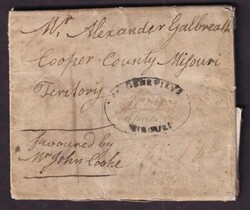 Mr Alexander Galbreath
Cooper County Misouri
Teritory
favoured by
Mr John Cooke
ST GENEVIEVE
MISOURI